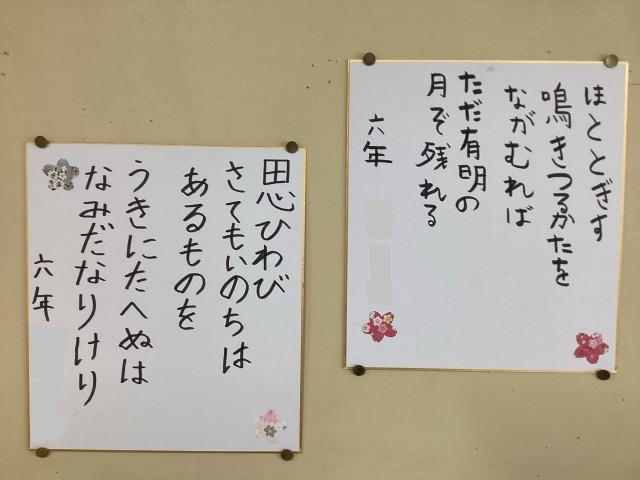 ほととぎす
鳴きつるかたを
ながむれば
ただ有明の
月ぞ残れる
六年
思ひわび
さてもいのちは
あるものを
うきにたへぬは
なみだなりけり
六年